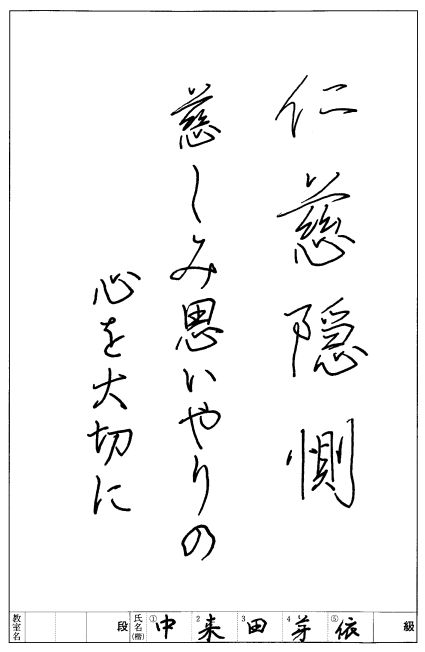 仁慈隠惻
慈しみ思いやりの
心を大切に
級
①中 2来 3田 4芽 ⑤依
氏名(楷)
段
教室名